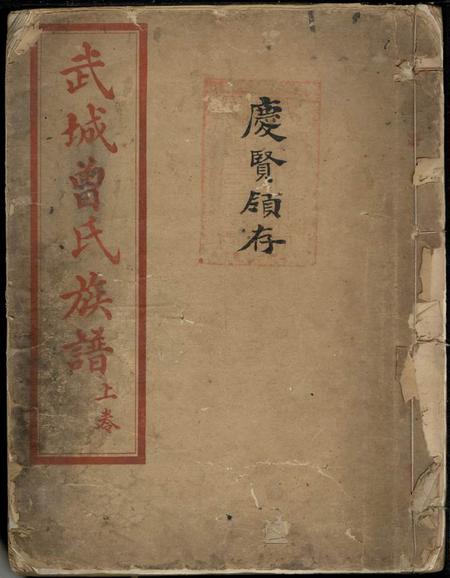 慶賢領存
武城曾氏族譜上卷